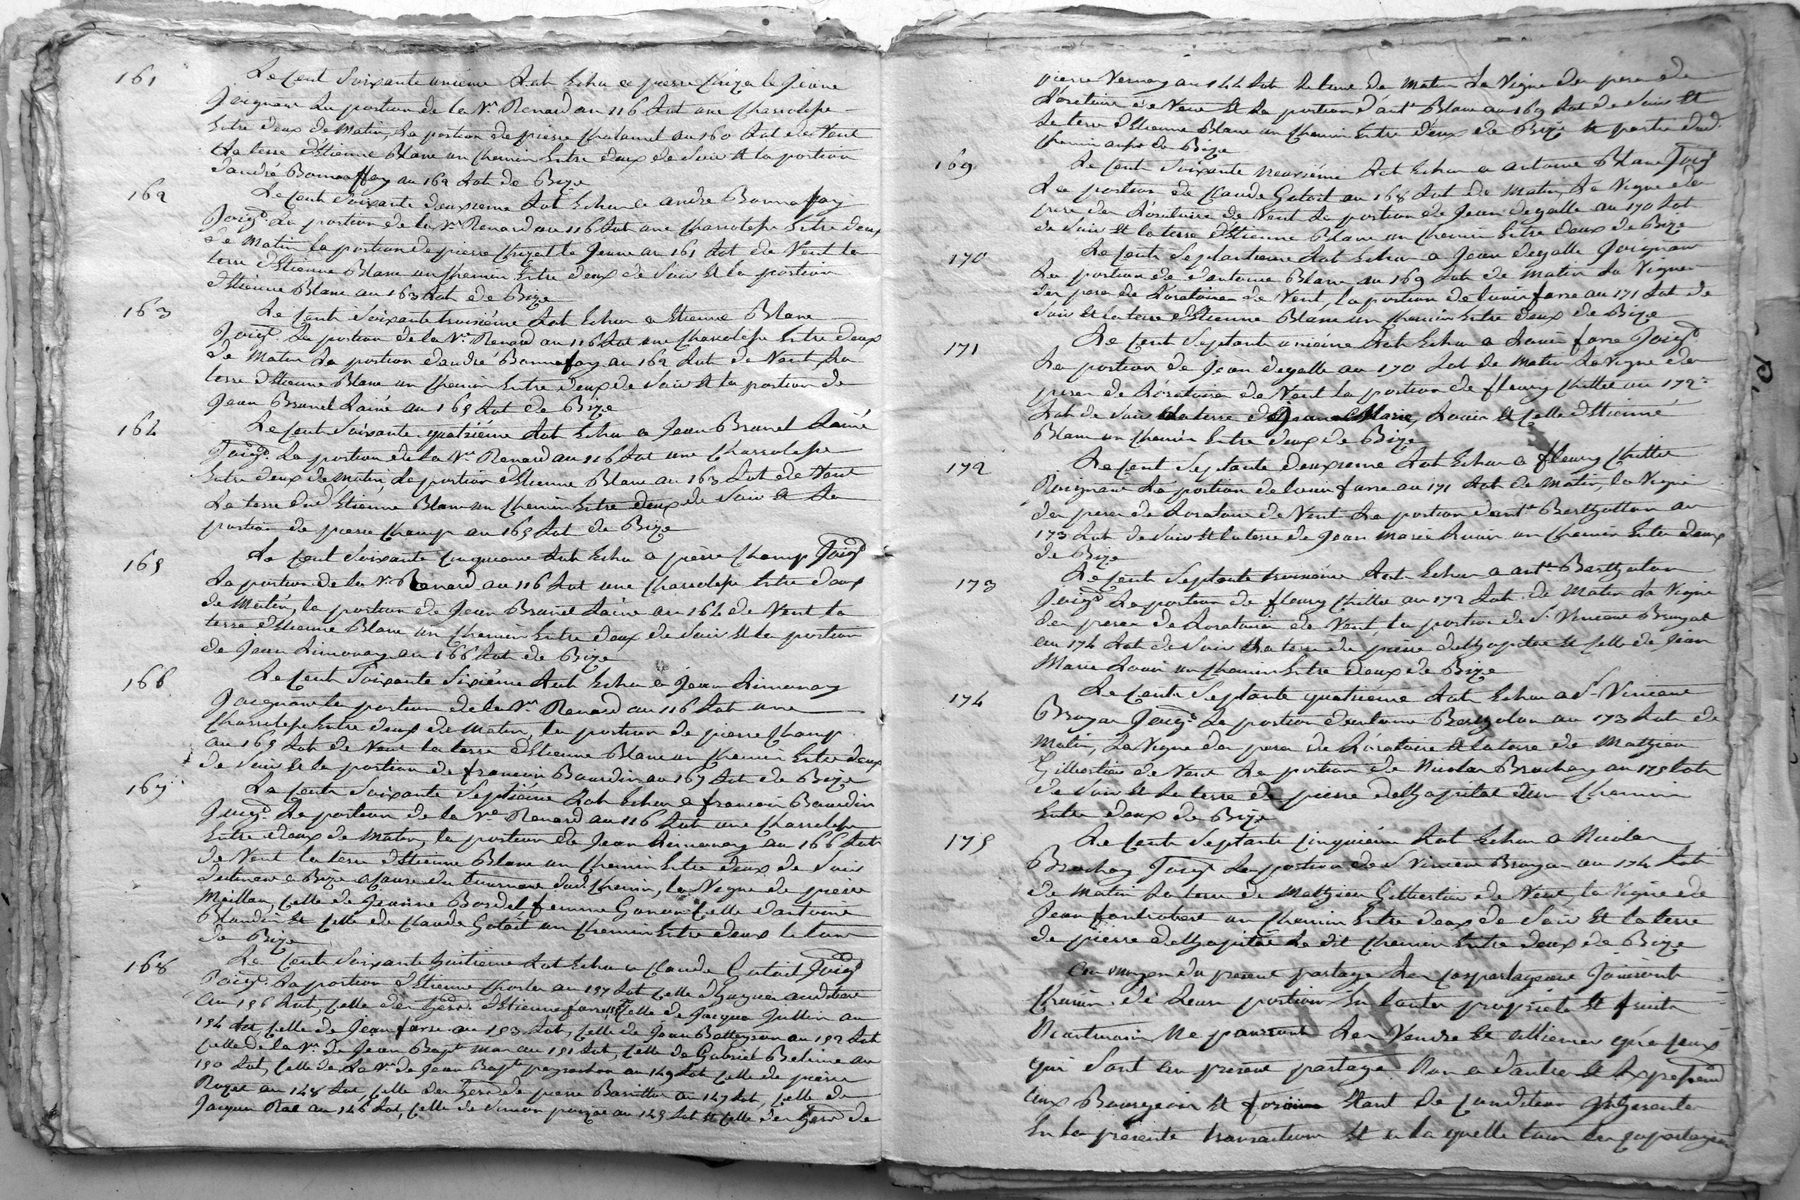 161 Le Cent Soixante unième Lot Echu a pierre Chizet le Jeune
Joignant La portion de la Ve Renard au 116 Lot une Charrolepe
Entre deux de Matin, La portion de pierre Chalumel au 160 Lot de Vent
La terre d'Etienne Blanc un Chemin Entre deux de Soir et la portion
d'andré Bonnaffoy au 162 Lot de Bize
162 Le Cent Soixante deuxieme Lot Echu a andré Bonnafoy
Joigt. La portion de la Ve Renard au 116 Lot une Charrolepe Entre deux
de Matin la portion de pierre Chizet le Jeune au 161 Lot de Vent la
terre d'Etienne Blanc un Chemin Entre deux de Soir et la portion
d'Etienne Blanc au 163 Lot de Bize
163 Le Cent Soixante troisième Lot Echu a Etienne Blanc
Joigt. La portion de la Ve Renard au 116 Lot une Charrolepe Entre deux
de Matin La portion d'andré Bonnefoy au 162 Lot de Vent La
terre d'Etienne Blanc un Chemin Entre deux de Soir et la portion de
Jean Brunel Lainé au 165 Lot de Bize
164 Le Cent Soixante quatrième Lot Echu a Jean Brunel Lainé
Joigt. La portion de la Ve Renard au 116 Lot une Charrolepe
Entre deux de Matin, La portion d'Etienne Blanc au 163 Lot de Vent
La terre dud. Etienne Blanc un Chemin Entre deux de Soir et La
portion de pierre Champ au 165 Lot de Bize
165 Le Cent Soixante Cinquieme Lot Echu a pierre Champ Joigt
La portion de la Ve Renard au 116 Lot une Charrolepe Entre deux
de Matin, la portion de Jean Brunel Lainé au 164 de Vent la
terre d'Etienne Blanc un Chemin Entre deux de Soir et la portion
de Jean Limonay au 166 Lot de Bize
166 Le Cent Soixante Sixième Lot Echu a Jean Limonay
Joignant la portion de la Ve Renard au 116 Lot une
Charrolepe Entre deux de Matin, la portion de pierre Champ
au 165 Lot de Vent la terre d'Etienne Blanc un Chemin Entre deux
de Soir et la portion de francois Bourdin au 167 Lot de Bize
167 Le Cent Soixante Septième Lot Echu a francois Bourdin
Joigt. La portion de la Ve Renard au 116 Lot une Charrolepe
Entre deux de Matin, la portion de Jean Limonay au 166 Lot
de Vent la terre d'Etienne Blanc un Chemin Entre deux de Soir
a Cause du tournant dud. Chemin, la Vigne de pierre
Meillan, Celle de Jeanne Bordel femme Celle d'antoine
Blandin et Celle de Claude Gatait un Chemin Entre deux
de Bize
168 Le Cent Soixante huitieme Lot Echu a Claude Gatait Joigt
Joigt. La portion d'Etienne au 157 Lot Celle
au 156 Lot, Celle des herrs. d'Etienne farre Celle de Jacque Jullin au
154 Lot, Celle de Jean farre au 153 Lot, Celle de Jean au 152 Lot
Celle de la Ve de Jean Bapt. au 151 Lot, Celle de Gabriel au
150 Lot, Celle de La Ve de Jean Bapt. au 149 Lot Celle de pierre
Rozet au 148 Lot, Celle des herrs de pierre au 147 Lot, Celle de
Jacque au 146 Lot, Celle de Simon au 145 Lot et Celle des herrs de
pierre Vernay au 144 Lot de Matin La Vigne du pere de
L'oratoire de Vent et La portion d'ant. Blanc au 169 Lot de Soir et
La terre d'Etienne Blanc un Chemin Entre deux de Bize et partie dud.
Chemin aussi de Bize
169 Le Cent Soixante Neuxième Lot Echu a antoine Blanc Joigt
La portion de Claude Gatait au 168 Lot de Matin, La Vigne des
pere de L'oratoire de Vent La portion de Jean degalle au 170 Lot
de Soir et la terre d'Etienne Blanc un Chemin Entre deux de Bize
170 Le Cent Septantieme Lot Echu a Jean degalle Joignant
La portion de d'antoine Blanc au 169 Lot de Matin La Vigne
des peres de L'oratoire de Vent, la portion de Louis farre au 171 Lot de
Soir et La terre d'Etienne Blanc un Chemin Entre deux de Bize
171 Le Cent Septante unieme Lot Echu a Louis farre Joigt
La portion de Jean degalle au 170 Lot de Matin La Vigne des
peres de L'oratoire de Vent la portion de fleury Chittre au 172e
Lot de Soir La terre de Jeanne Marie Louis et Celle d'Etienne
Blanc un Chemin Entre deux de Bize
172 Le Cent Septante deuxieme Lot Echu a fleury Chittre
Joignant La portion de Louis farre au 171 Lot de Matin, la Vigne
des peres de L'oratoire de Vent La portion d'ant. Berthollon au
173 Lot de Soir et la terre de Jean Marie Louis un Chemin Entre deux
de Bize
173 Le Cent Septante troisième Lot Echu a ant. Berthollon
Joigt La portion de fleury Chittre au 172 Lot de Matin La Vigne
des peres de L'oratoire de Vent, la portion de St. Vincent Bruyat
au 174 Lot de Soir et La terre de pierre delhopital et Celle de Jean
Marie Louis un Chemin Entre deux de Bize
174 Le Cent Septante quatrieme Lot Echu a St. Vincent
Bruyat Joigt La portion d'antoine Berthollon au 173 Lot de
Matin, La Vigne des peres de L'oratoire et La terre de Mathieu
Gilliertier de Vent La portion de Nicolas Brochay au 175 Lot
de Soir et La terre de pierre delhopital un Chemin
Entre deux de Bize
175 Le Cent Septante Cinquième Lot Echu a Nicolas
Brochay Joigt La portion de St Vincent Bruyat au 174 Lot
de Matin La terre de Mathieu Gilliertier de Vent, la Vigne de
Jean fontrobert un Chemin Entre deux de Soir et la terre
de pierre delhopital Le dit Chemin Entre deux de Bize
au moyen du present partage Les Copartageant Joüiront
Chacun de Leurs portions En toutes propriété et fruits
Neantmoins Ne pourront Les Vendre et alliener qu'a Ceux
qui Sont au present partage Non a d'autres et Expressem.
aux Bourgeois et forains Etant de Condition
En la présente transaction et a la quelle tous les copartageans